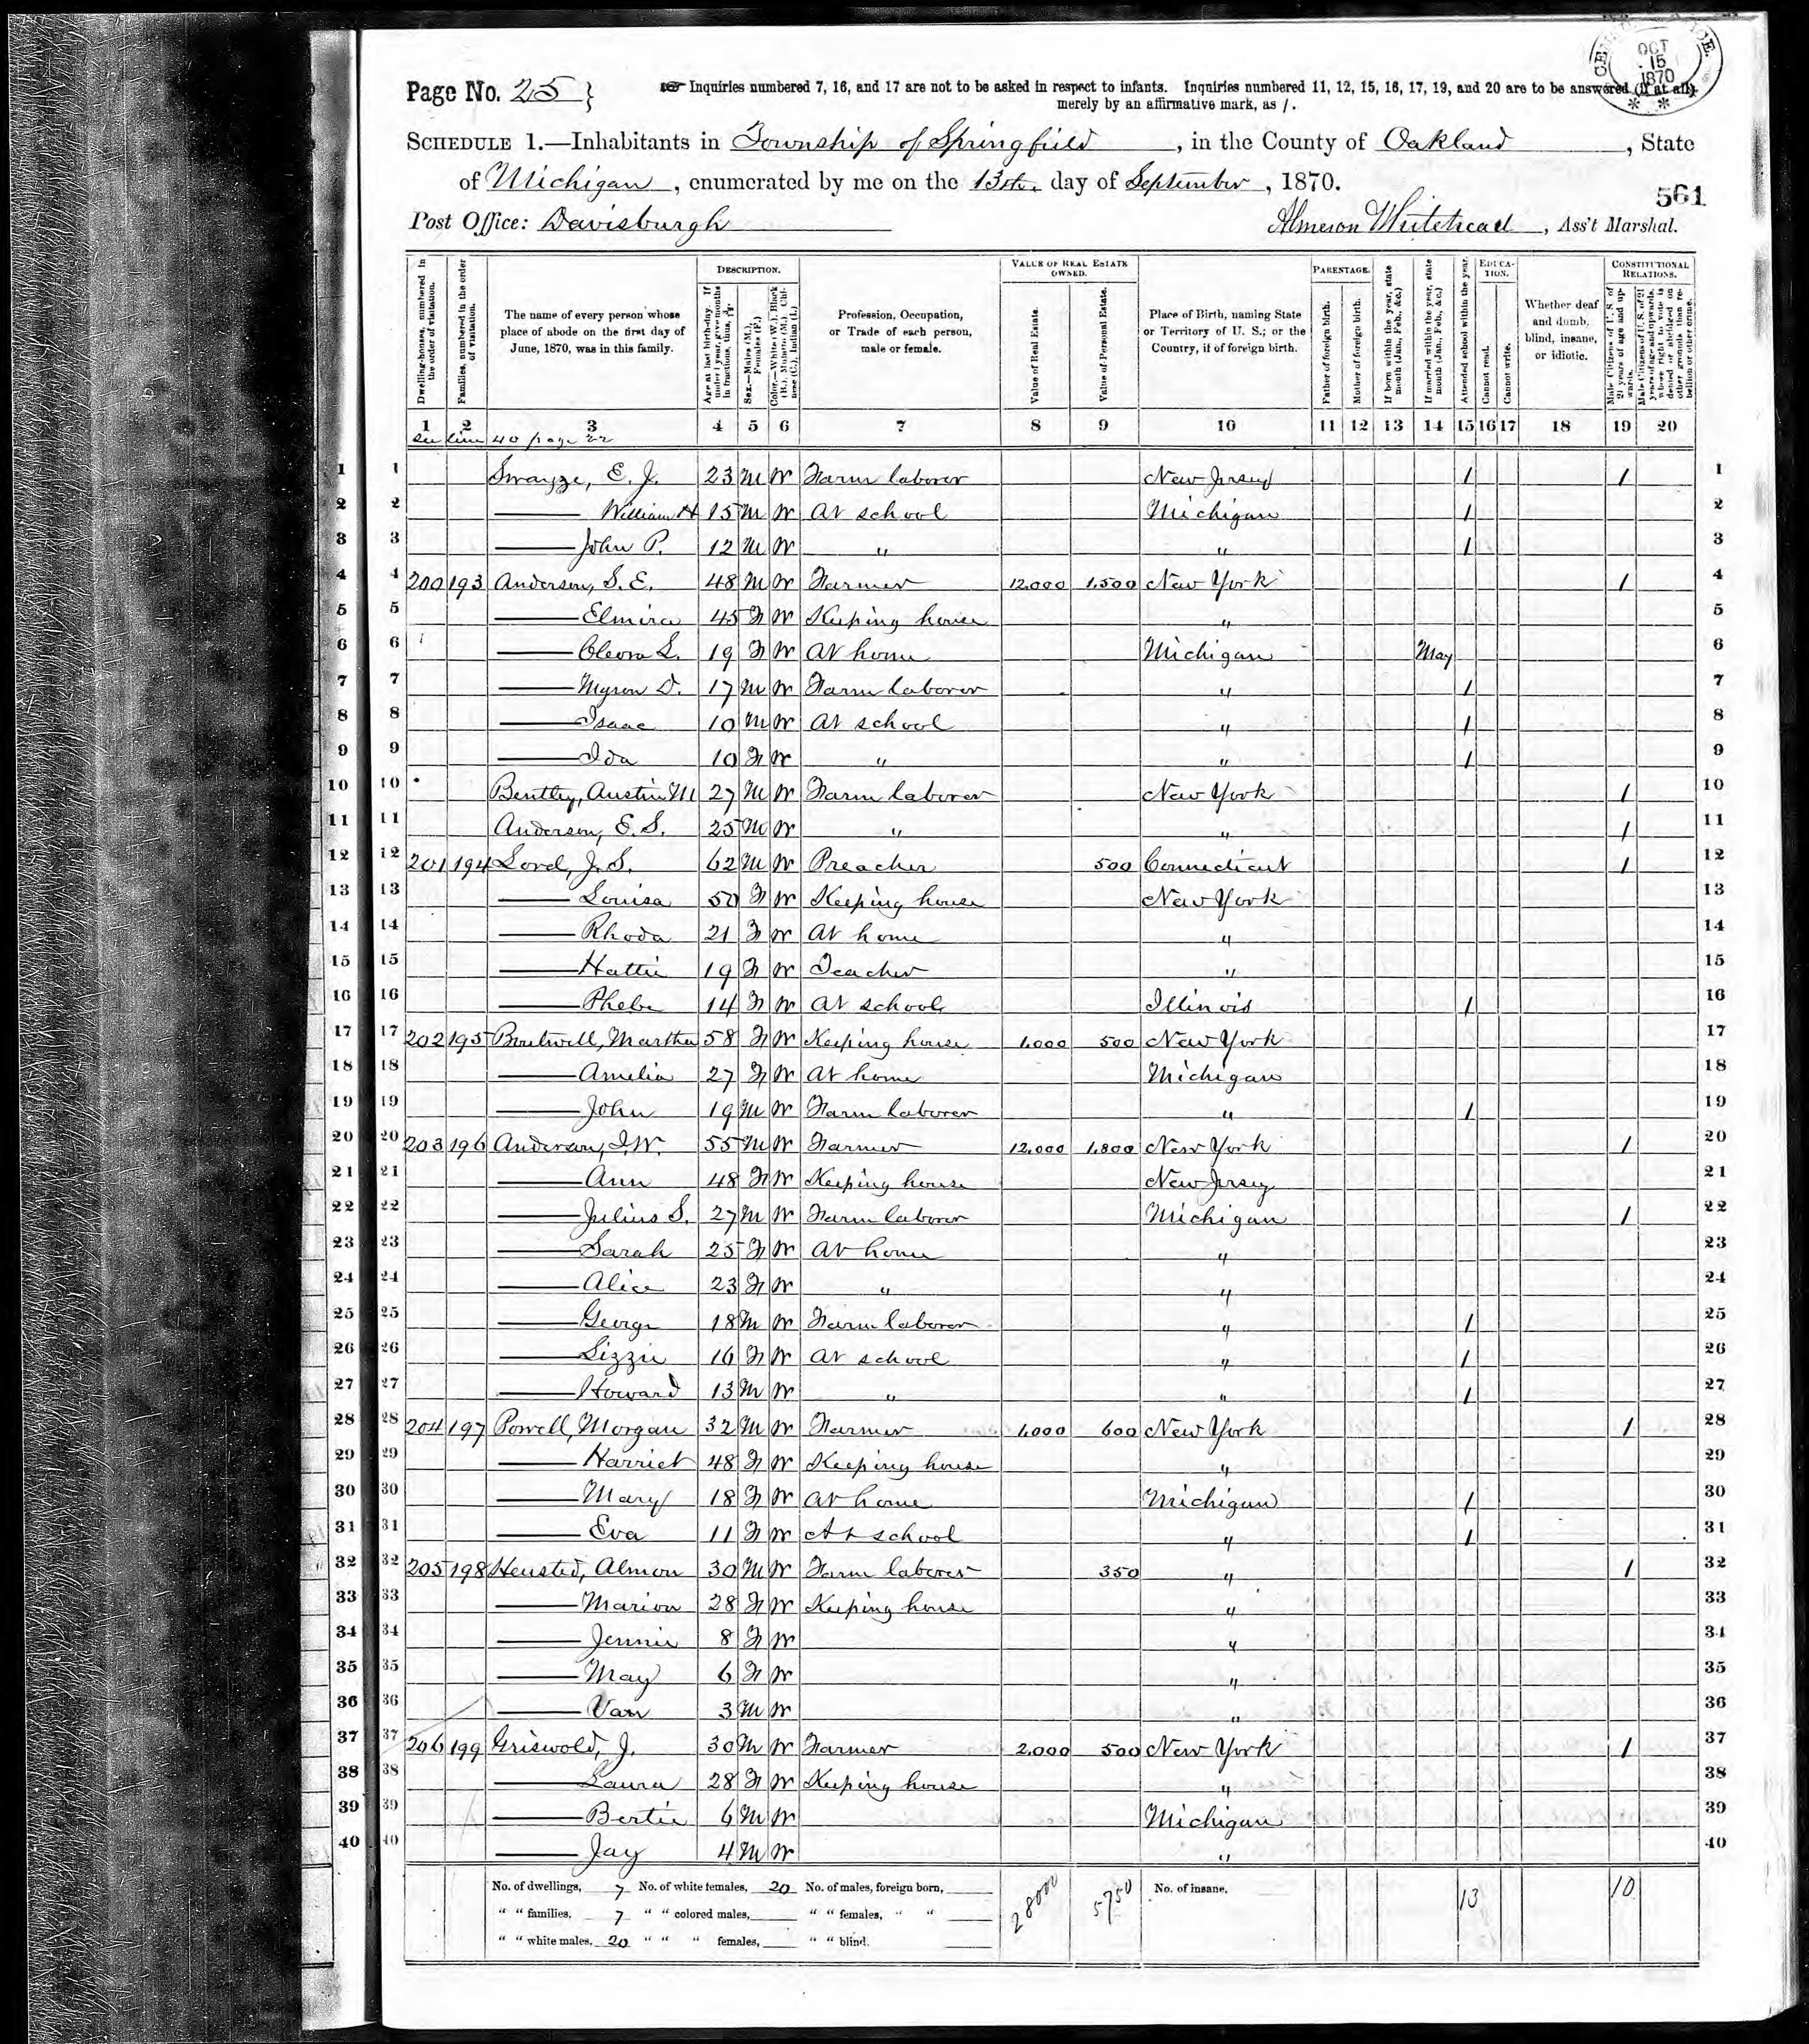 CE ICE
OCT
15
1870
* *
Page No. 25 }
☞ Inquiries numbered 7, 16, and 17 are not to be asked in respect to infants. Inquiries numbered 11, 12, 15, 16, 17, 19, and 20 are to be answered (if at all)
merely by an affirmative mark, as /.
SCHEDULE 1.—Inhabitants in Township of Springfield, in the County of Oakland, State
of Michigan, enumerated by me on the 13th. day of September, 1870.
561
Post Office: Davisburgh
Almeron Whitehead, Ass't Marshal.
Dwelling-houses, numbered in the order of visitation.
Families, numbered in the order of visitation.
The name of every person whose place of abode on the first day of June, 1870, was in this family.
DESCRIPTION.
Age at last birth-day. If under 1 year, give months in fractions, thus, 3/12.
Sex.—Males (M.), Females (F.)
Color.—White (W.), Black (B.), Mulatto (M.), Chinese (C.), Indian (I.)
Profession, Occupation, or Trade of each person, male or female.
VALUE OF REAL ESTATE OWNED.
Value of Real Estate.
Value of Personal Estate.
Place of Birth, naming State or Territory of U. S.; or the Country, if of foreign birth.
PARENTAGE.
Father of foreign birth.
Mother of foreign birth.
If born within the year, state month (Jan., Feb., &c.)
If married within the year, state month (Jan., Feb., &c.)
EDUCATION.
Attended school within the year.
Cannot read.
Cannot write.
Whether deaf and dumb, blind, insane, or idiotic.
CONSTITUTIONAL RELATIONS.
Male Citizens of U. S. of 21 years of age and upwards.
Male Citizens of U. S. of 21 years of age and upwards, whose right to vote is denied or abridged on other grounds than rebellion or other crime.
1 2 3 4 5 6 7 8 9 10 11 12 13 14 15 16 17 18 19 20
See line 40 page 22
1 1 Swayze, E. J. 23 M W Farm laborer New Jersey 1 1 1
2 2 —— William H 15 M W At school Michigan 1 2
3 3 —— John P. 12 M W " " 1 3
4 4 200 193 Anderson, S. E. 48 M W Farmer 12,000 1,500 New York 1 4
5 5 —— Elmira 45 F W Keeping house " 5
6 6 —— Cleora L. 19 F W At home Michigan May 6
7 7 —— Myron D. 17 M W Farm laborer " 1 7
8 8 —— Isaac 10 M W At school " 1 8
9 9 —— Ida 10 F W " " 1 9
10 10 Bentley, Austin M 27 M W Farm laborer New York 1 10
11 11 Anderson, E. S. 25 M W " " 1 11
12 12 201 194 Lord, J. S. 62 M W Preacher 500 Connecticut 1 12
13 13 —— Louisa 50 F W Keeping house New York 13
14 14 —— Rhoda 21 F W At home " 14
15 15 —— Hattie 19 F W Teacher " 15
16 16 —— Phebe 14 F W At school Illinois 1 16
17 17 202 195 Boutwell, Martha 58 F W Keeping house 1,000 500 New York 17
18 18 —— Amelia 27 F W At home Michigan 18
19 19 —— John 19 M W Farm laborer " 1 19
20 20 203 196 Anderson, I. W. 55 M W Farmer 12,000 1,800 New York 1 20
21 21 —— Ann 48 F W Keeping house New Jersey 21
22 22 —— Julius S. 27 M W Farm laborer Michigan 1 22
23 23 —— Sarah 25 F W At home " 23
24 24 —— Alice 23 F W " " 24
25 25 —— George 18 M W Farm laborer " 1 25
26 26 —— Lizzie 16 F W At school " 1 26
27 27 —— Howard 13 M W " " 1 27
28 28 204 197 Powell, Morgan 32 M W Farmer 1,000 600 New York 1 28
29 29 —— Harriet 48 F W Keeping house " 29
30 30 —— Mary 18 F W At home Michigan 1 30
31 31 —— Eva 11 F W At school " 1 31
32 32 205 198 Heusted, Almon 30 M W Farm laborer 350 " 1 32
33 33 —— Marion 28 F W Keeping house " 33
34 34 —— Jennie 8 F W " 34
35 35 —— May 6 F W " 35
36 36 —— Van 3 M W " 36
37 37 206 199 Griswold, J. 30 M W Farmer 2,000 500 New York 1 37
38 38 —— Laura 28 F W Keeping house " 38
39 39 —— Bertie 6 M W Michigan 39
40 40 —— Jay 4 M W " 40
No. of dwellings, 7 No. of white females, 20 No. of males, foreign born, 28000 5750 No. of insane, 13 10
" " families, 7 " " colored males, " " females, " "
" " white males, 20 " " " females, " " blind.